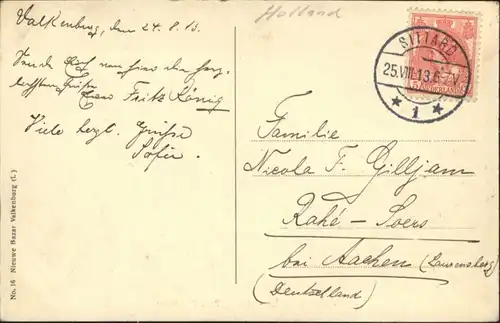 Valkenburg, den 24.8.13.
Holland
von hier die herz-
Fritz König
Viele herzl. Grüße
Sofie.
SITTARD
25.VIII.13.6-7V
★ 1 ★
NEDERLAND
Familie
Nicola F. Gilljam
Rahé - Soers
bei Aachen (Laurensberg)
(Deutschland)
No. 16 Nieuwe Bazar Valkenburg (L.)